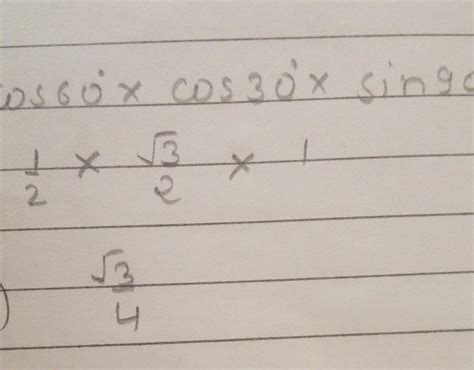 cos60° × cos30° × sin90
1/2 × √3/2 × 1
) √3/4